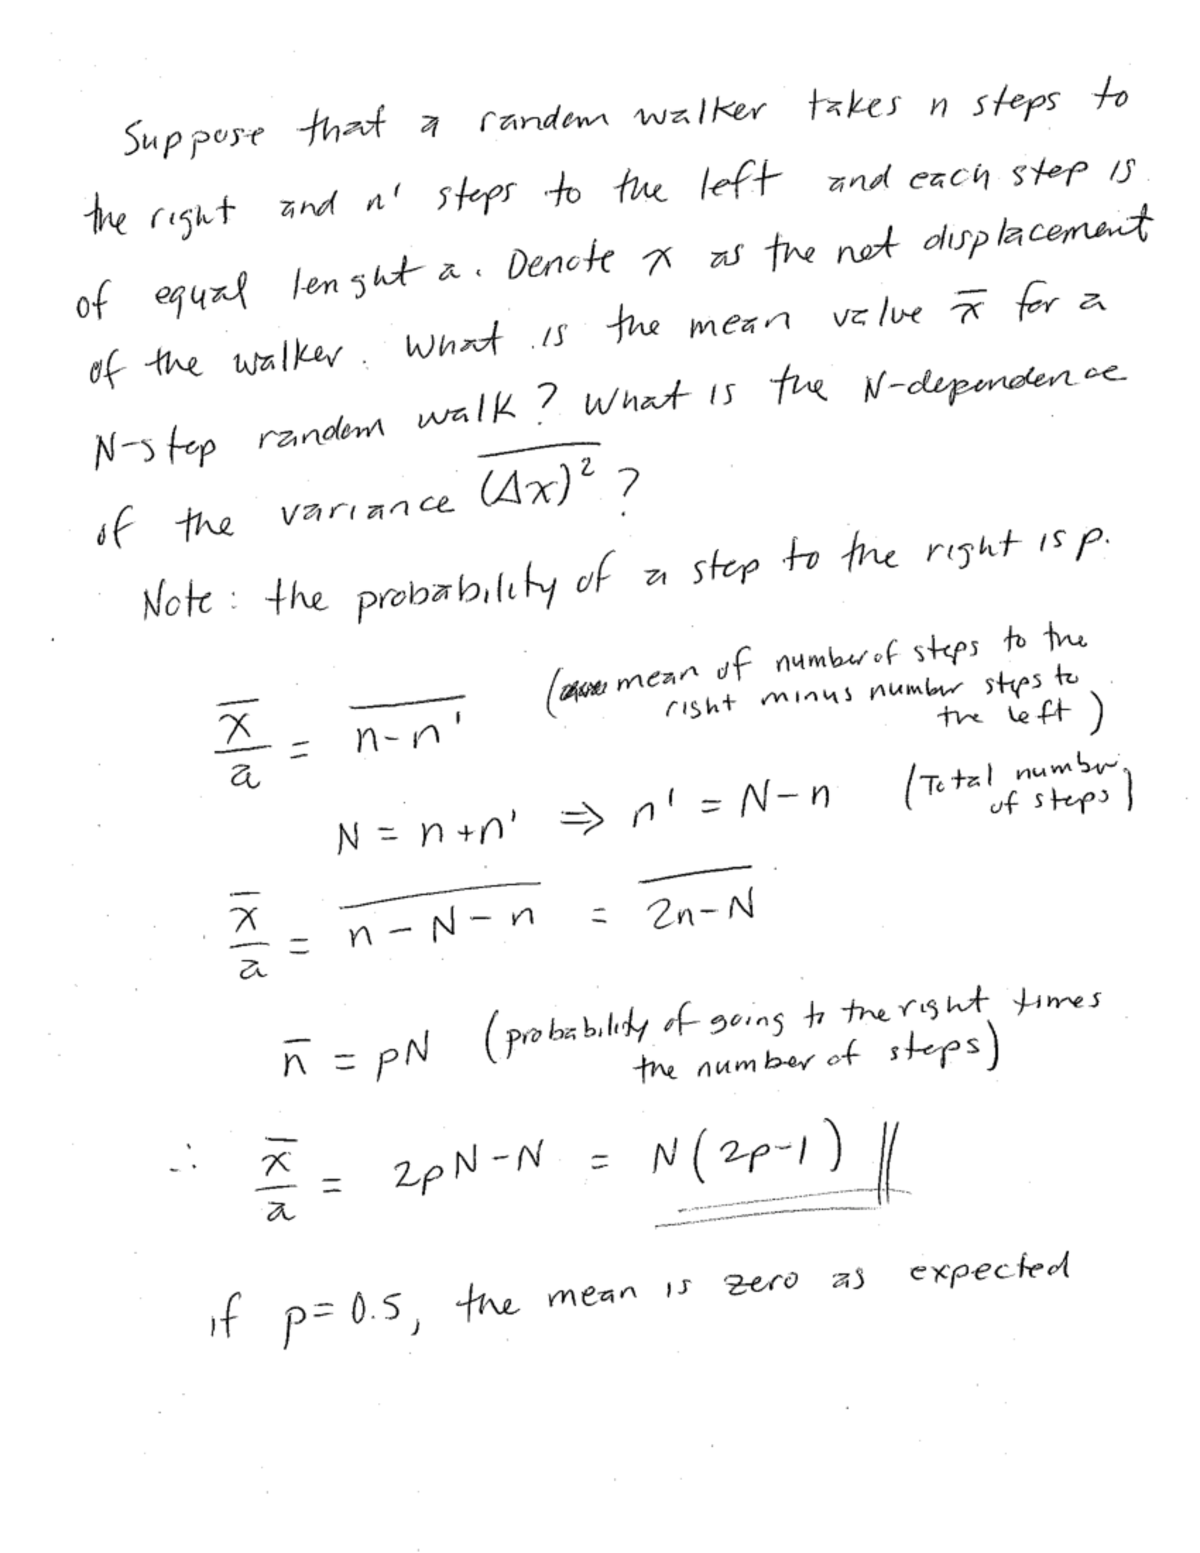 Suppose that a random walker takes n steps to
the right and n' steps to the left and each step is
of equal lenght a. Denote x as the net displacement
of the walker. What is the mean value x̅ for a
N-step random walk? What is the N-dependence
of the variance \overline{(Δx)²}?
Note: the probability of a step to the right is p.
x̅/a = \overline{n-n'} (mean of number of steps to the
right minus number steps to
the left)
N = n+n' ⇒ n' = N-n (Total number
of steps)
x̅/a = \overline{n-N-n} = \overline{2n-N}
n̅ = pN (probability of going to the right times
the number of steps)
∴ x̅/a = 2pN-N = N(2p-1) ||
if p=0.5, the mean is zero as expected